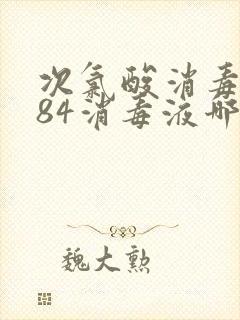 次氯酸消毒
84消毒液哪
魏大勲